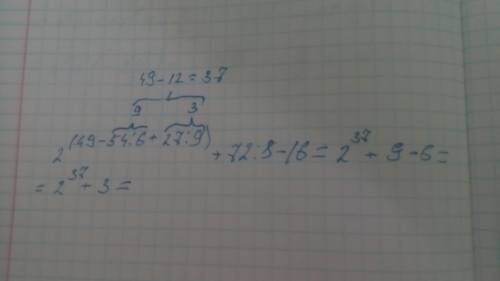 49-12=37
9 3
2^(49-54:6+27:9) + 72:8-16 = 2^37 + 9-6=
= 2^37 + 3 =